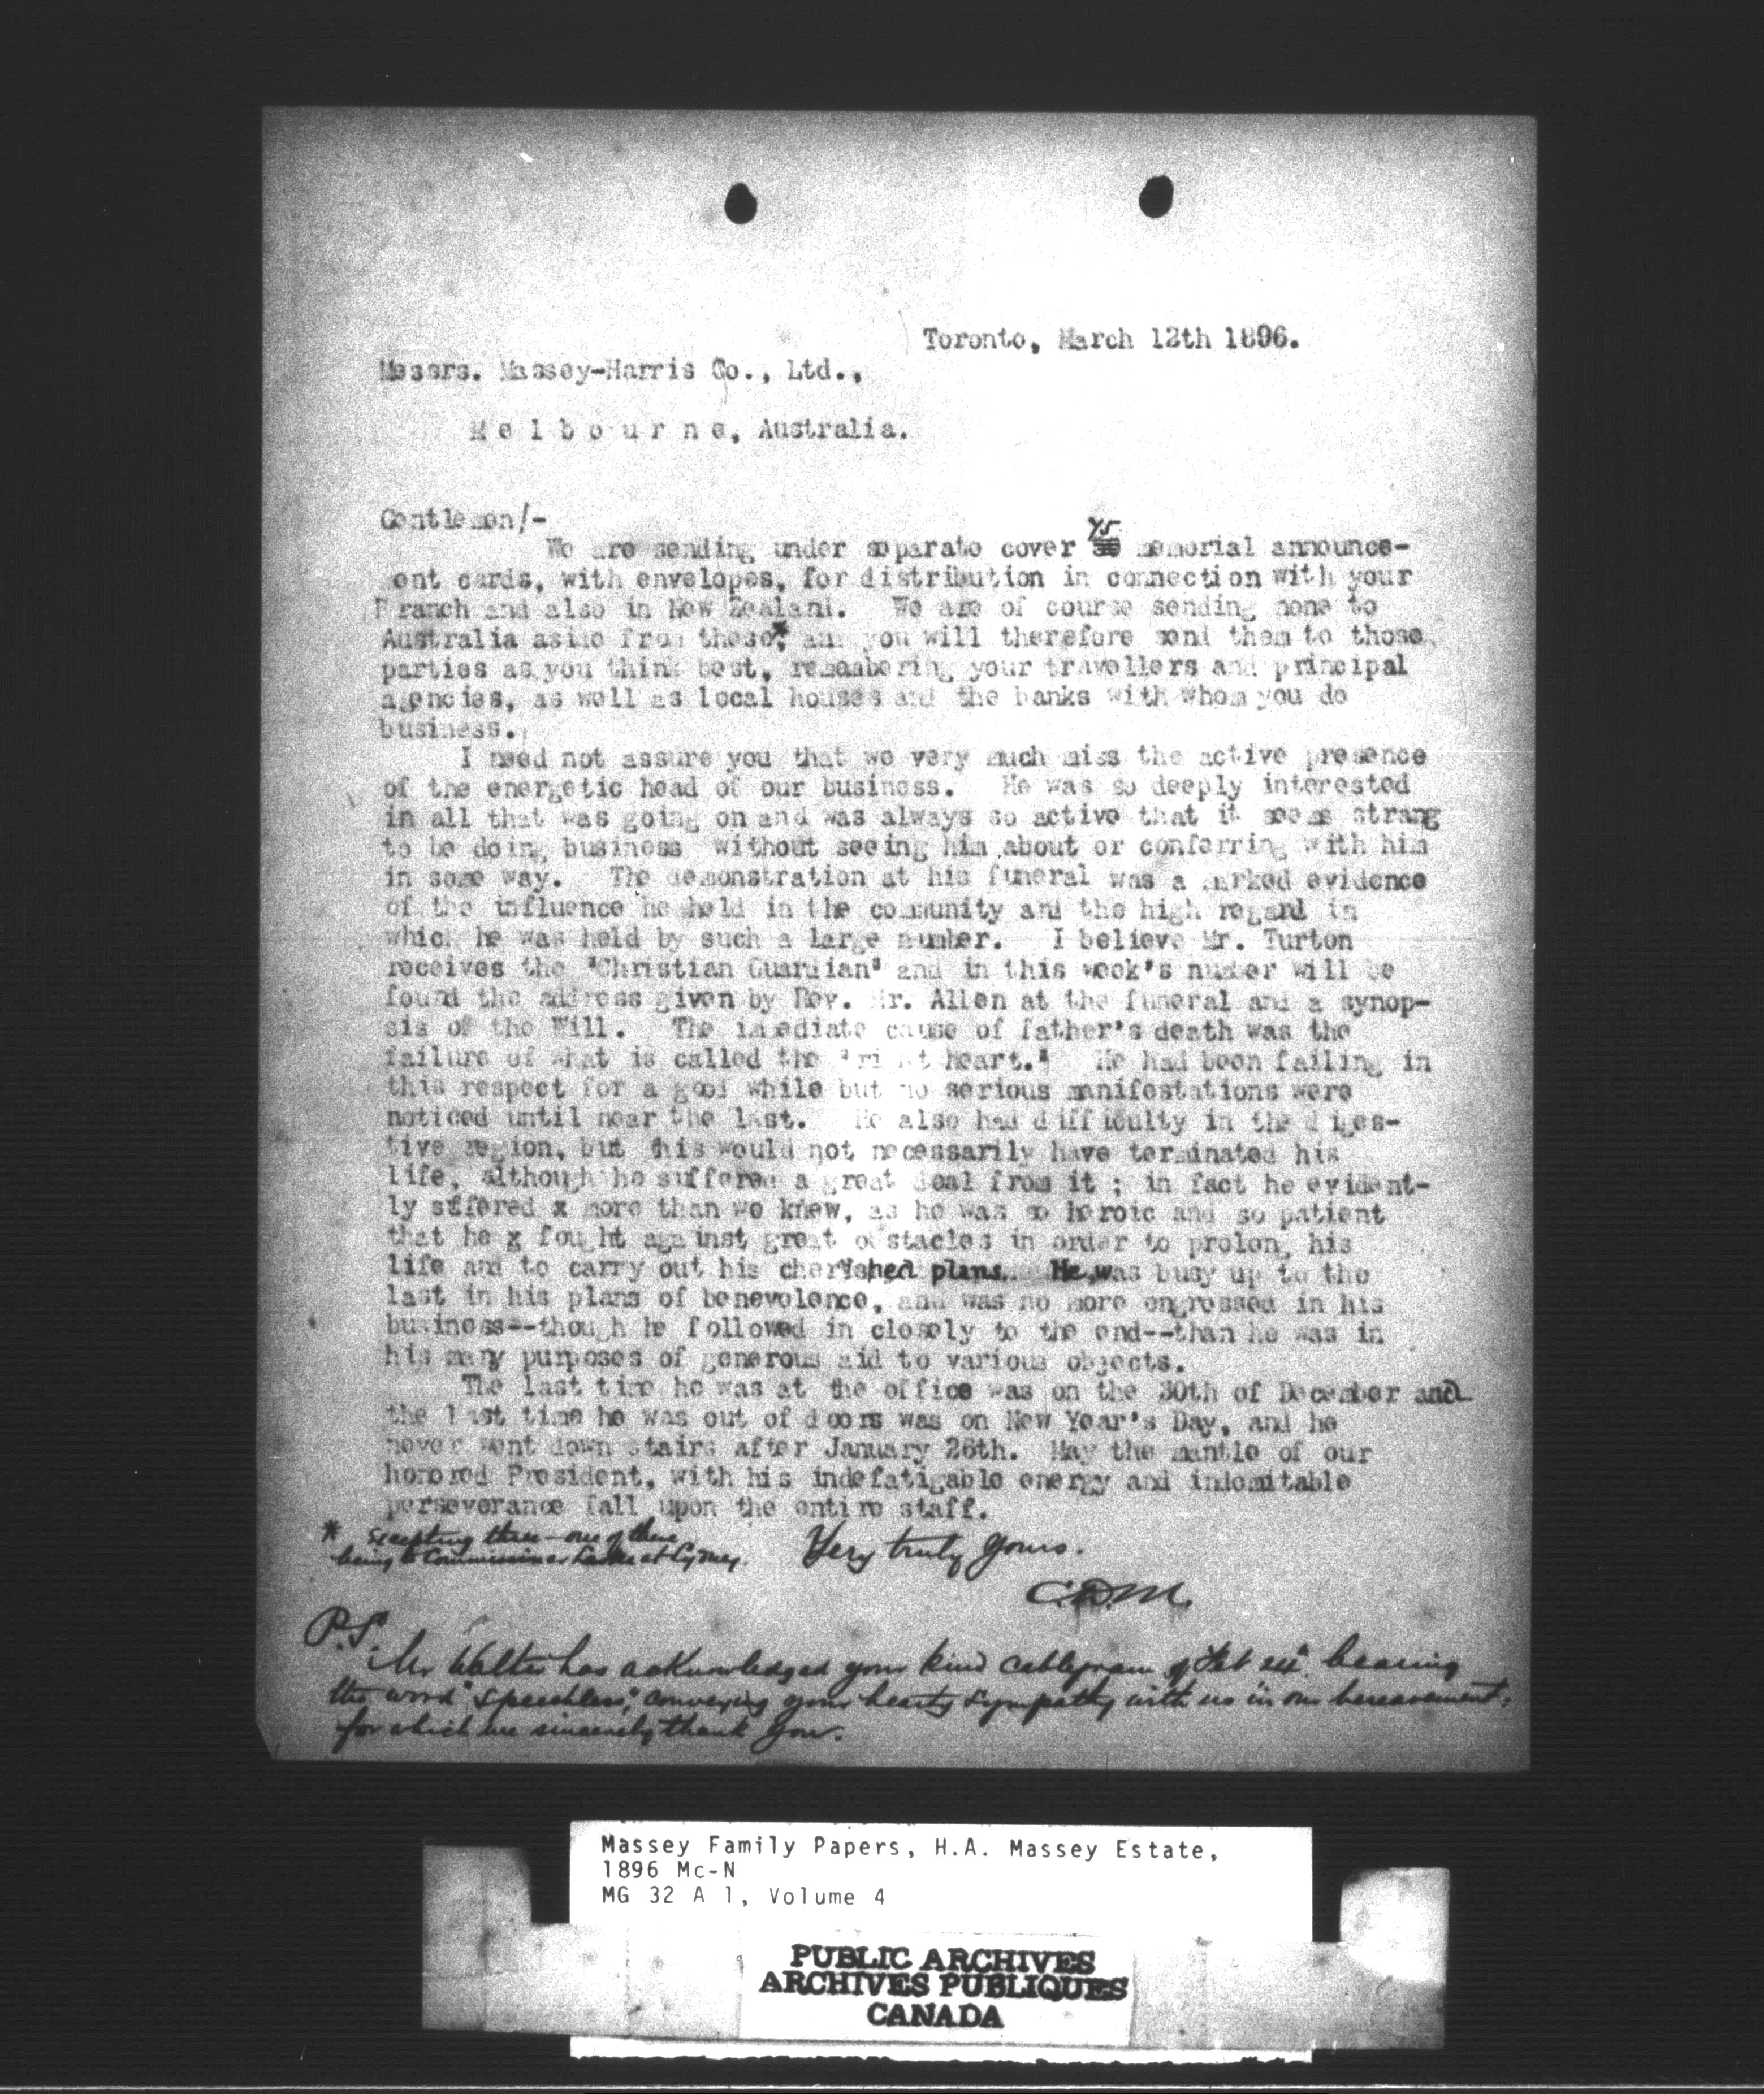 Toronto, March 12th 1896.
Messrs. Massey-Harris Co., Ltd.,
Melbourne, Australia.
Gentlemen/-
We are sending under separate cover 75 memorial announce-
ent cards, with envelopes, for distribution in connection with your
Branch and also in New Zealand. We are of course sending none to
Australia aside from these,* and you will therefore send them to those
parties as you think best, remembering your travellers and principal
agencies, as well as local houses and the banks with whom you do
business.
I need not assure you that we very much miss the active presence
of the energetic head of our business. He was so deeply interested
in all that was going on and was always so active that it seems strang
to be doing business without seeing him about or conferring with him
in some way. The demonstration at his funeral was a marked evidence
of the influence he held in the community and the high regard in
which he was held by such a large number. I believe Mr. Turton
receives the "Christian Guardian" and in this week's number will be
found the address given by Rev. Mr. Allen at the funeral and a synop-
sis of the Will. The imediate cause of father's death was the
failure of what is called the "right heart." He had been failing in
this respect for a good while but no serious manifestations were
noticed until near the last. He also had difficulty in the diges-
tive region, but this would not necessarily have terminated his
life, although he suffered a great deal from it ; in fact he evident-
ly suffered x more than we knew, as he was so heroic and so patient
that he x fought against great obstacles in order to prolong his
life and to carry out his cherished plans. He was busy up to the
last in his plans of benevolence, and was no more engrossed in his
business--though he followed in closely to the end--than he was in
his many purposes of generous aid to various objects.
The last time he was at the office was on the 30th of December and
the last time he was out of doors was on New Year's Day, and he
never went down stairs after January 26th. May the mantle of our
honored President, with his indefatigable energy and indomitable
perseverance fall upon the entire staff.
* Excepting three—one of these
being to Commissioner at Sydney.
Very truly yours.
C.D.M.
P.S.
Mr Walter has acknowledged your kind cablegram of Feb bearing
the word "Speechless," conveying your hearty sympathy with us in our bereavement,
for which we sincerely thank you.
Massey Family Papers, H.A. Massey Estate,
1896 Mc-N
MG 32 A 1, Volume 4
PUBLIC ARCHIVES
ARCHIVES PUBLIQUES
CANADA